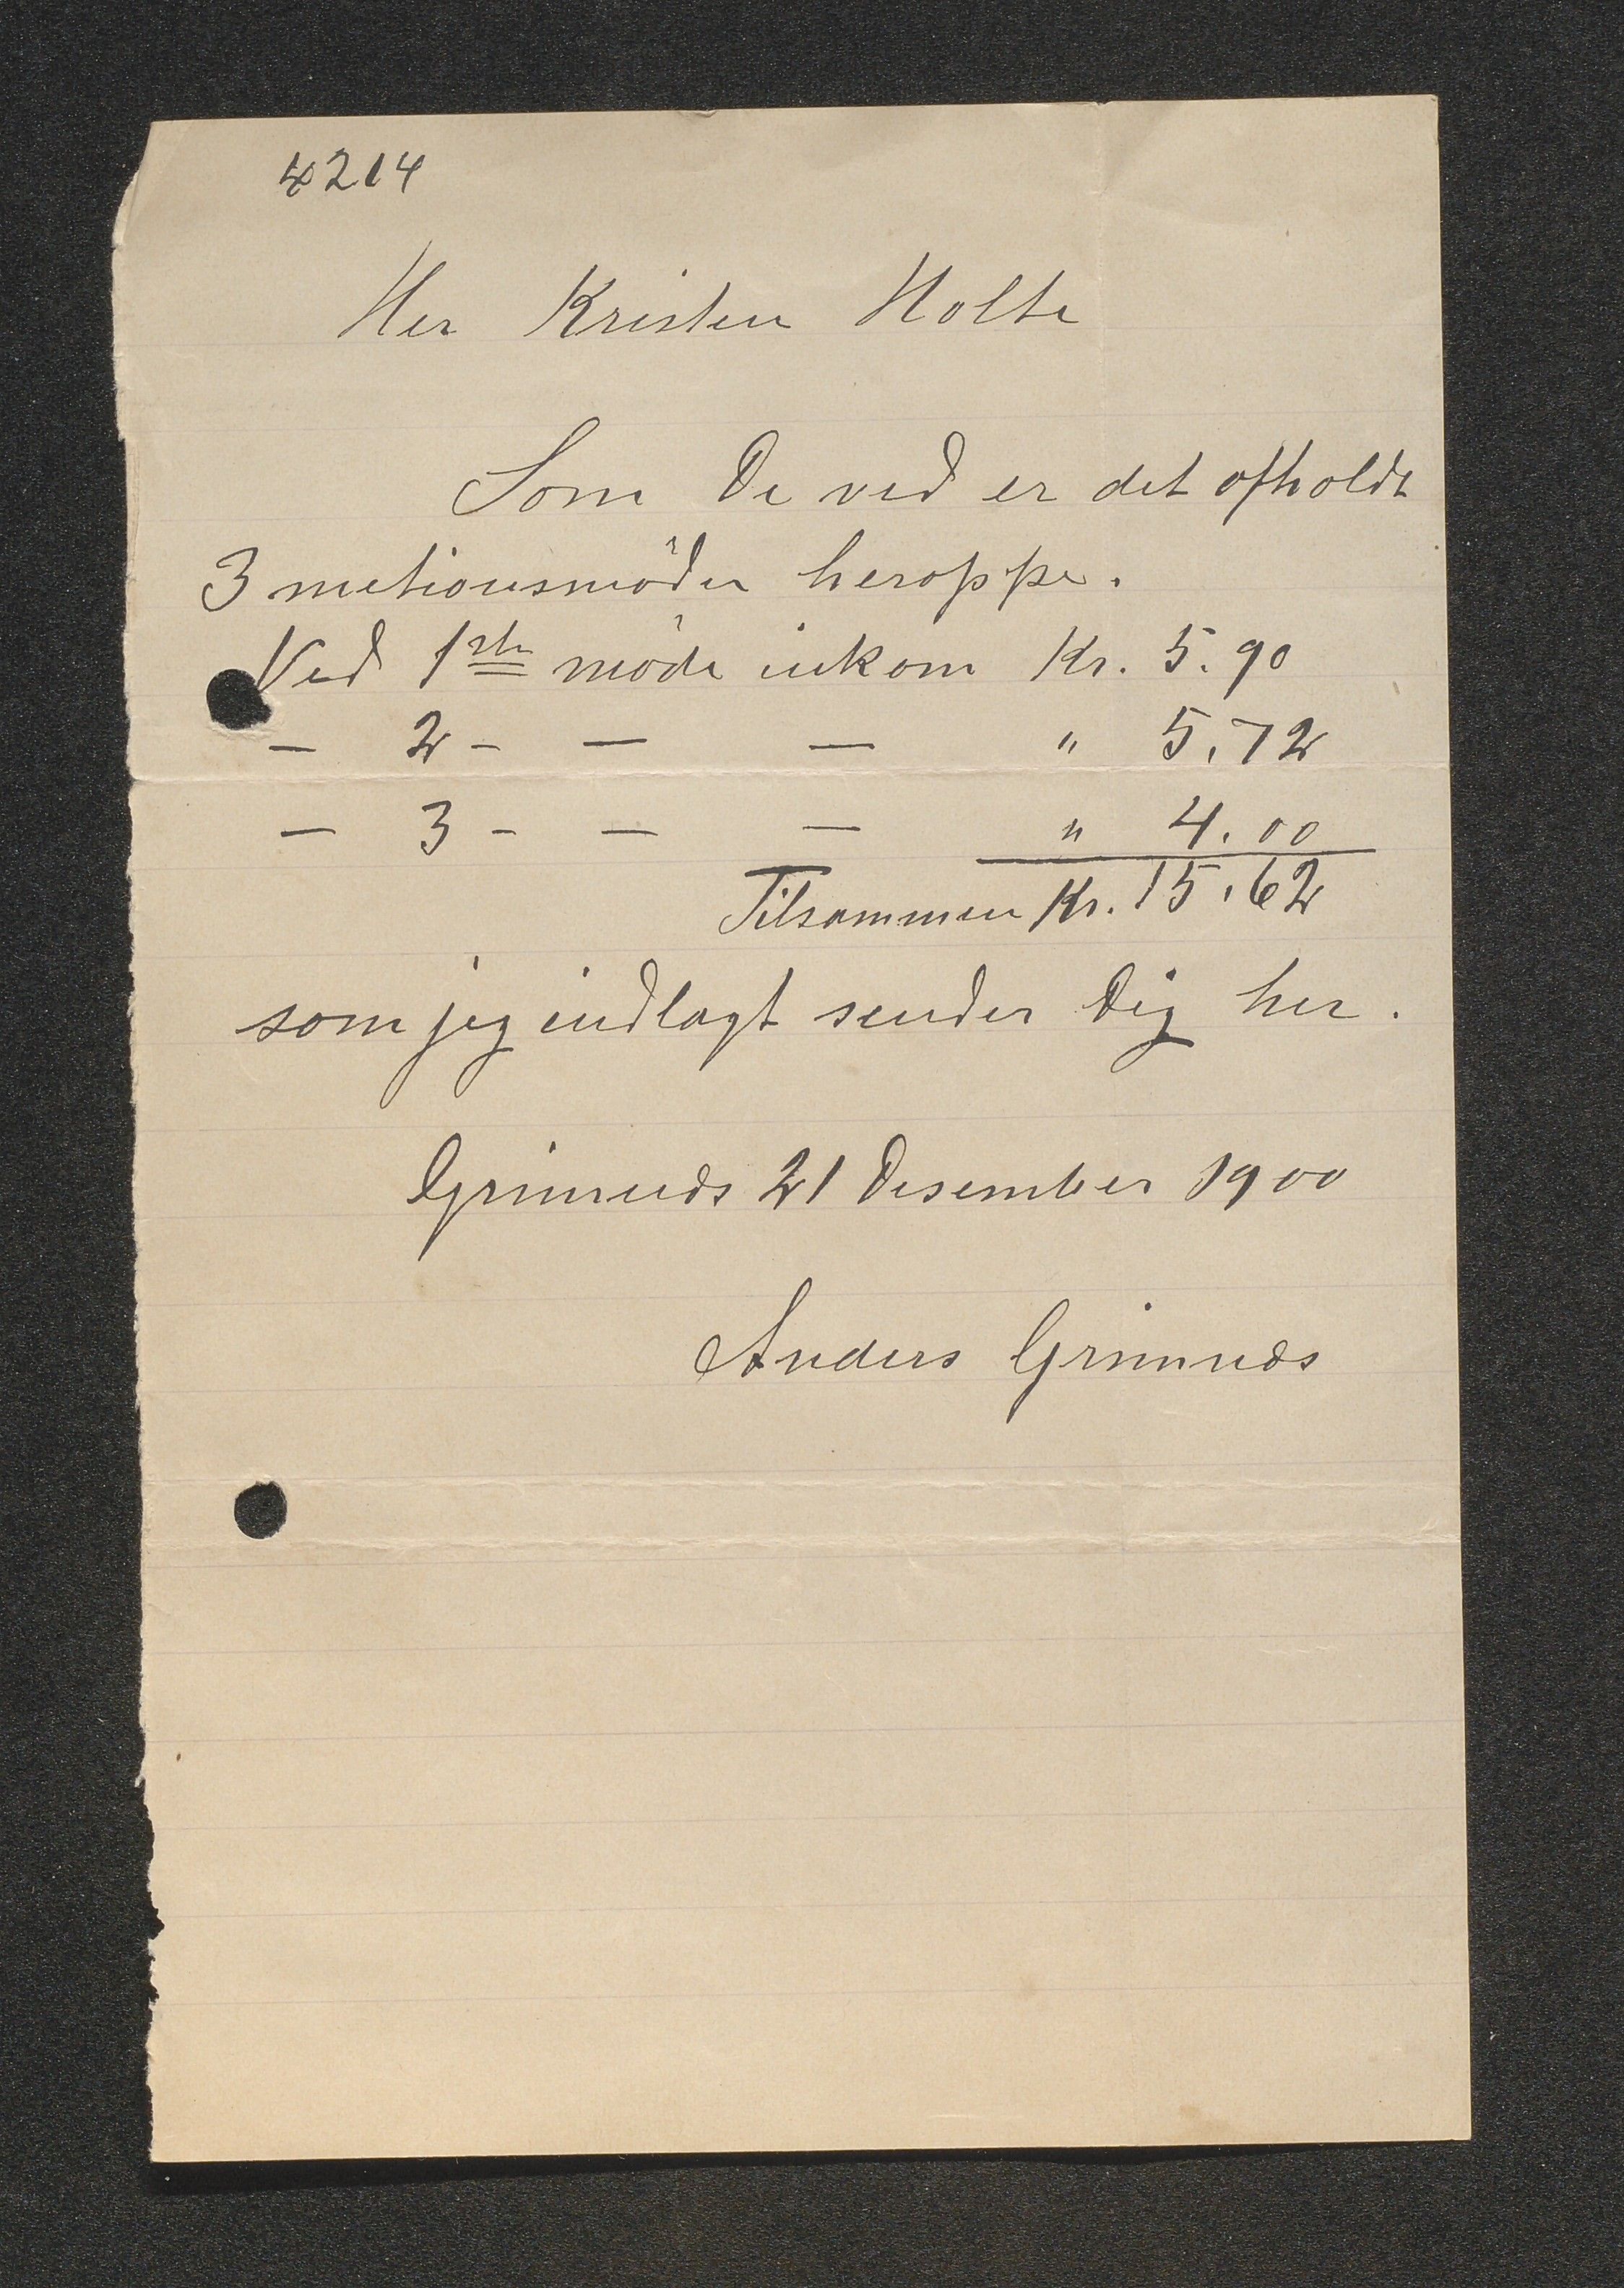 4214
Her Kristen Holte
Som De ved er det afholdt
3 metionsmöder heroppe.
Ved 1ste möde inkom Kr. 5.90
— 2 - — — " 5,72
— 3 - — — " 4.00
Tilsammen Kr. 15,62
som jeg indlagt sender Dig her.
Grimruds 21 Desember 1900
Anders Grimruds